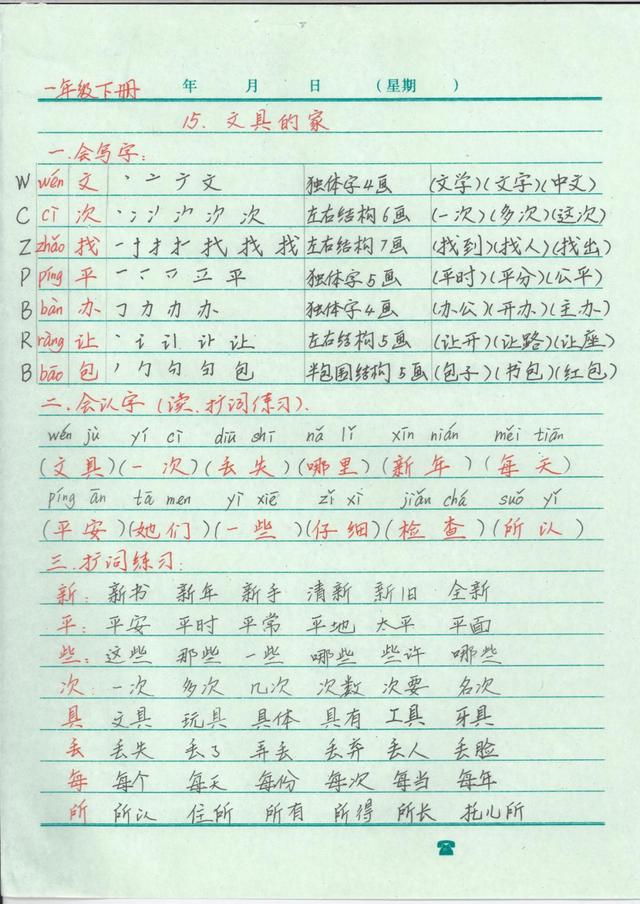 一年级下册 年 月 日 (星期 )
15. 文具的家
一.会写字:
W wén 文 丶 亠 ナ 文 独体字4画 (文学)(文字)(中文)
C cì 次 次 次 左右结构6画 (一次)(多次)(这次)
Z zhǎo 找 一 十 扌 找 找 找 左右结构7画 (找到)(找人)(找出)
P píng 平 一 平 独体字5画 (平时)(平分)(公平)
B bàn 办 ㇆ 力 办 办 独体字4画 (办公)(开办)(主办)
R ràng 让 丶 讠 让 让 左右结构5画 (让开)(让路)(让座)
B bāo 包 丿 勹 勺 包 半包围结构5画 (包子)(书包)(红包)
二.会认字(读、扩词练习).
wén jù yí cì diū shī nǎ lǐ xīn nián měi tiān
(文具)(一次)(丢失)(哪里)(新年)(每天)
píng ān tā men yì xiē zǐ xì jiǎn chá suǒ yǐ
(平安)(她们)(一些)(仔细)(检查)(所以)
三.扩词练习:
新: 新书 新年 新手 清新 新旧 全新
平: 平安 平时 平常 平地 太平 平面
些: 这些 那些 一些 哪些 些许 哪些
次: 一次 多次 几次 次数 次要 名次
具 文具 玩具 具体 具有 工具 牙具
丢 丢失 丢了 弄丢 丢弃 丢人 丢脸
每 每个 每天 每份 每次 每当 每年
所 所以 住所 所有 所得 所长 托儿所